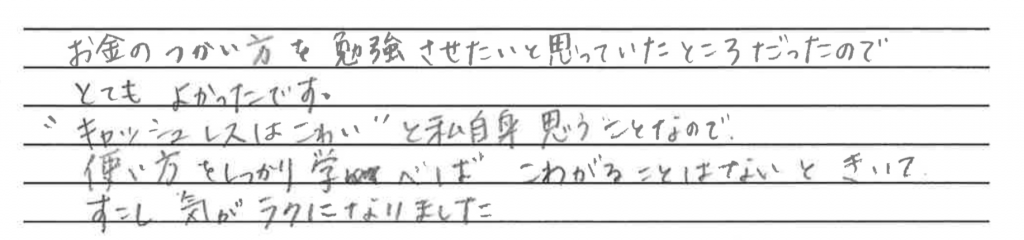 お金のつかい方を勉強させたいと思っていたところだったので
とてもよかったです。
"キャッシュレスはこわい"と私自身思うことなので.
使い方をしっかり学べば こわがることはないときいて.
すこし気がラクになりました